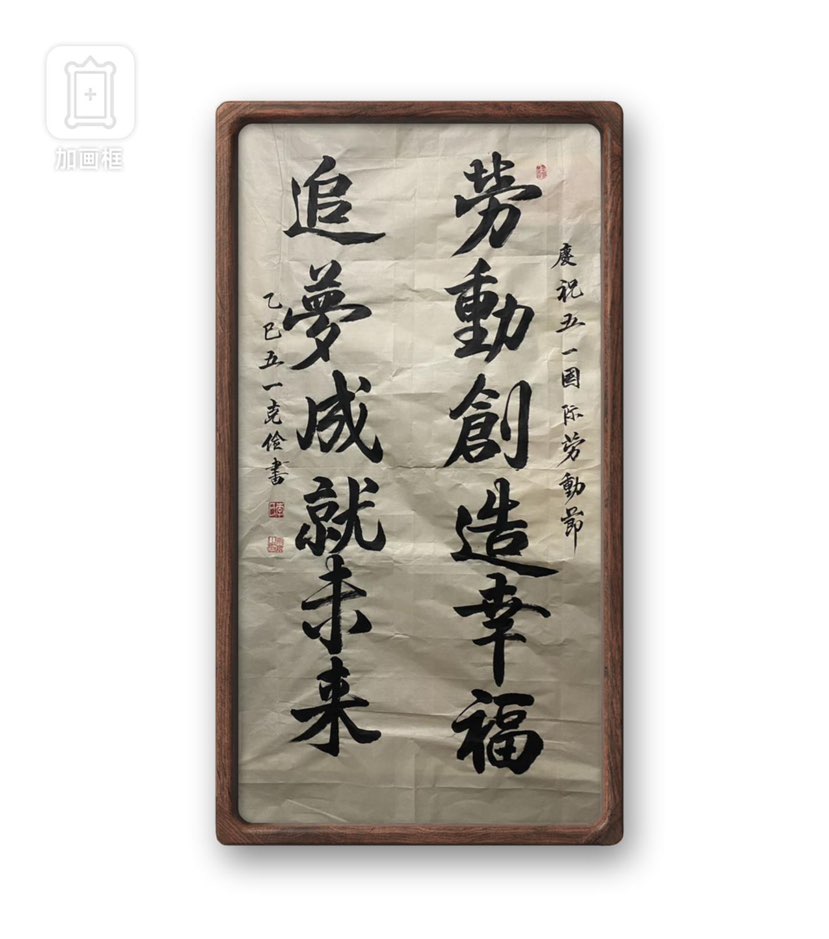 加画框
慶祝五一国际劳動節
勞動創造幸福
追夢成就未来
乙巳五一克儉書